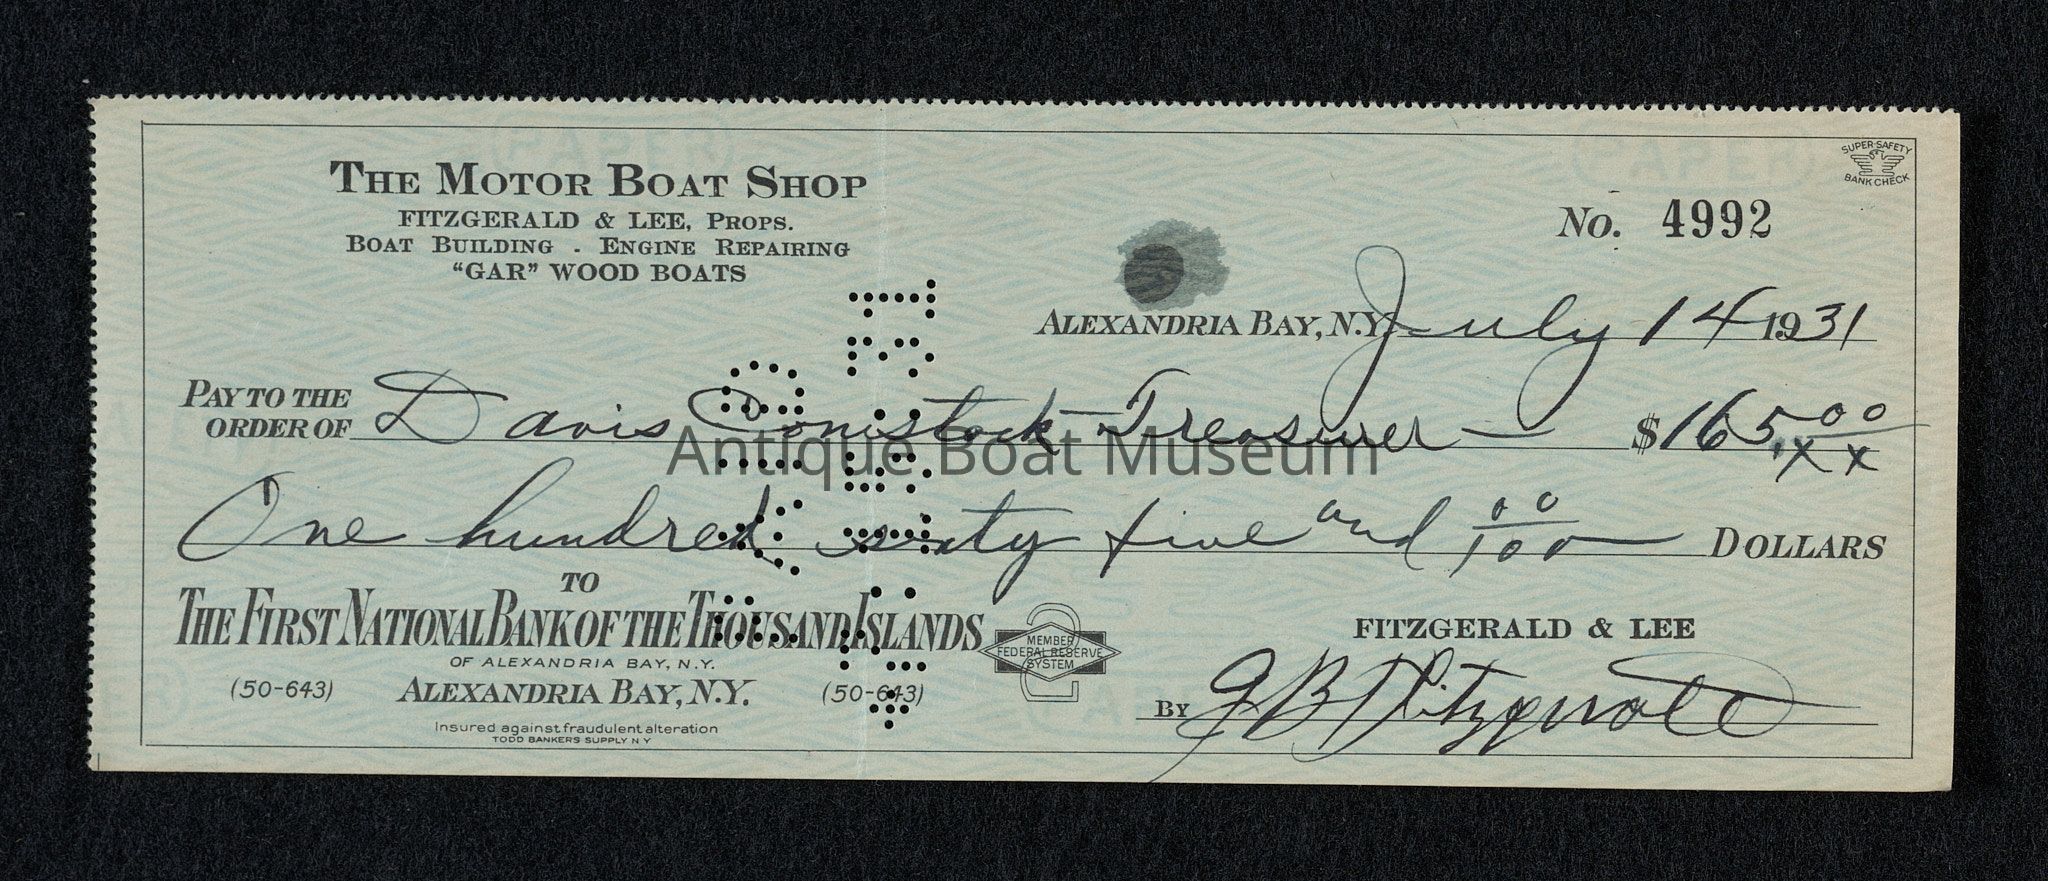 THE MOTOR BOAT SHOP
FITZGERALD & LEE, PROPS.
BOAT BUILDING - ENGINE REPAIRING
"GAR" WOOD BOATS
SUPER-SAFETY
BANK CHECK
No. 4992
ALEXANDRIA BAY, N.Y. July 14 1931
PAY TO THE
ORDER OF Davis Comstock - Treasurer — $165.00
xx
Antique Boat Museum
One hundred sixty five and 00/100 DOLLARS
TO
THE FIRST NATIONAL BANK OF THE THOUSAND ISLANDS
OF ALEXANDRIA BAY, N.Y.
(50-643) ALEXANDRIA BAY, N.Y. (50-643)
Insured against fraudulent alteration
TODD BANKERS SUPPLY N Y
MEMBER
FEDERAL RESERVE
SYSTEM
2
FITZGERALD & LEE
BY J B Fitzgerald